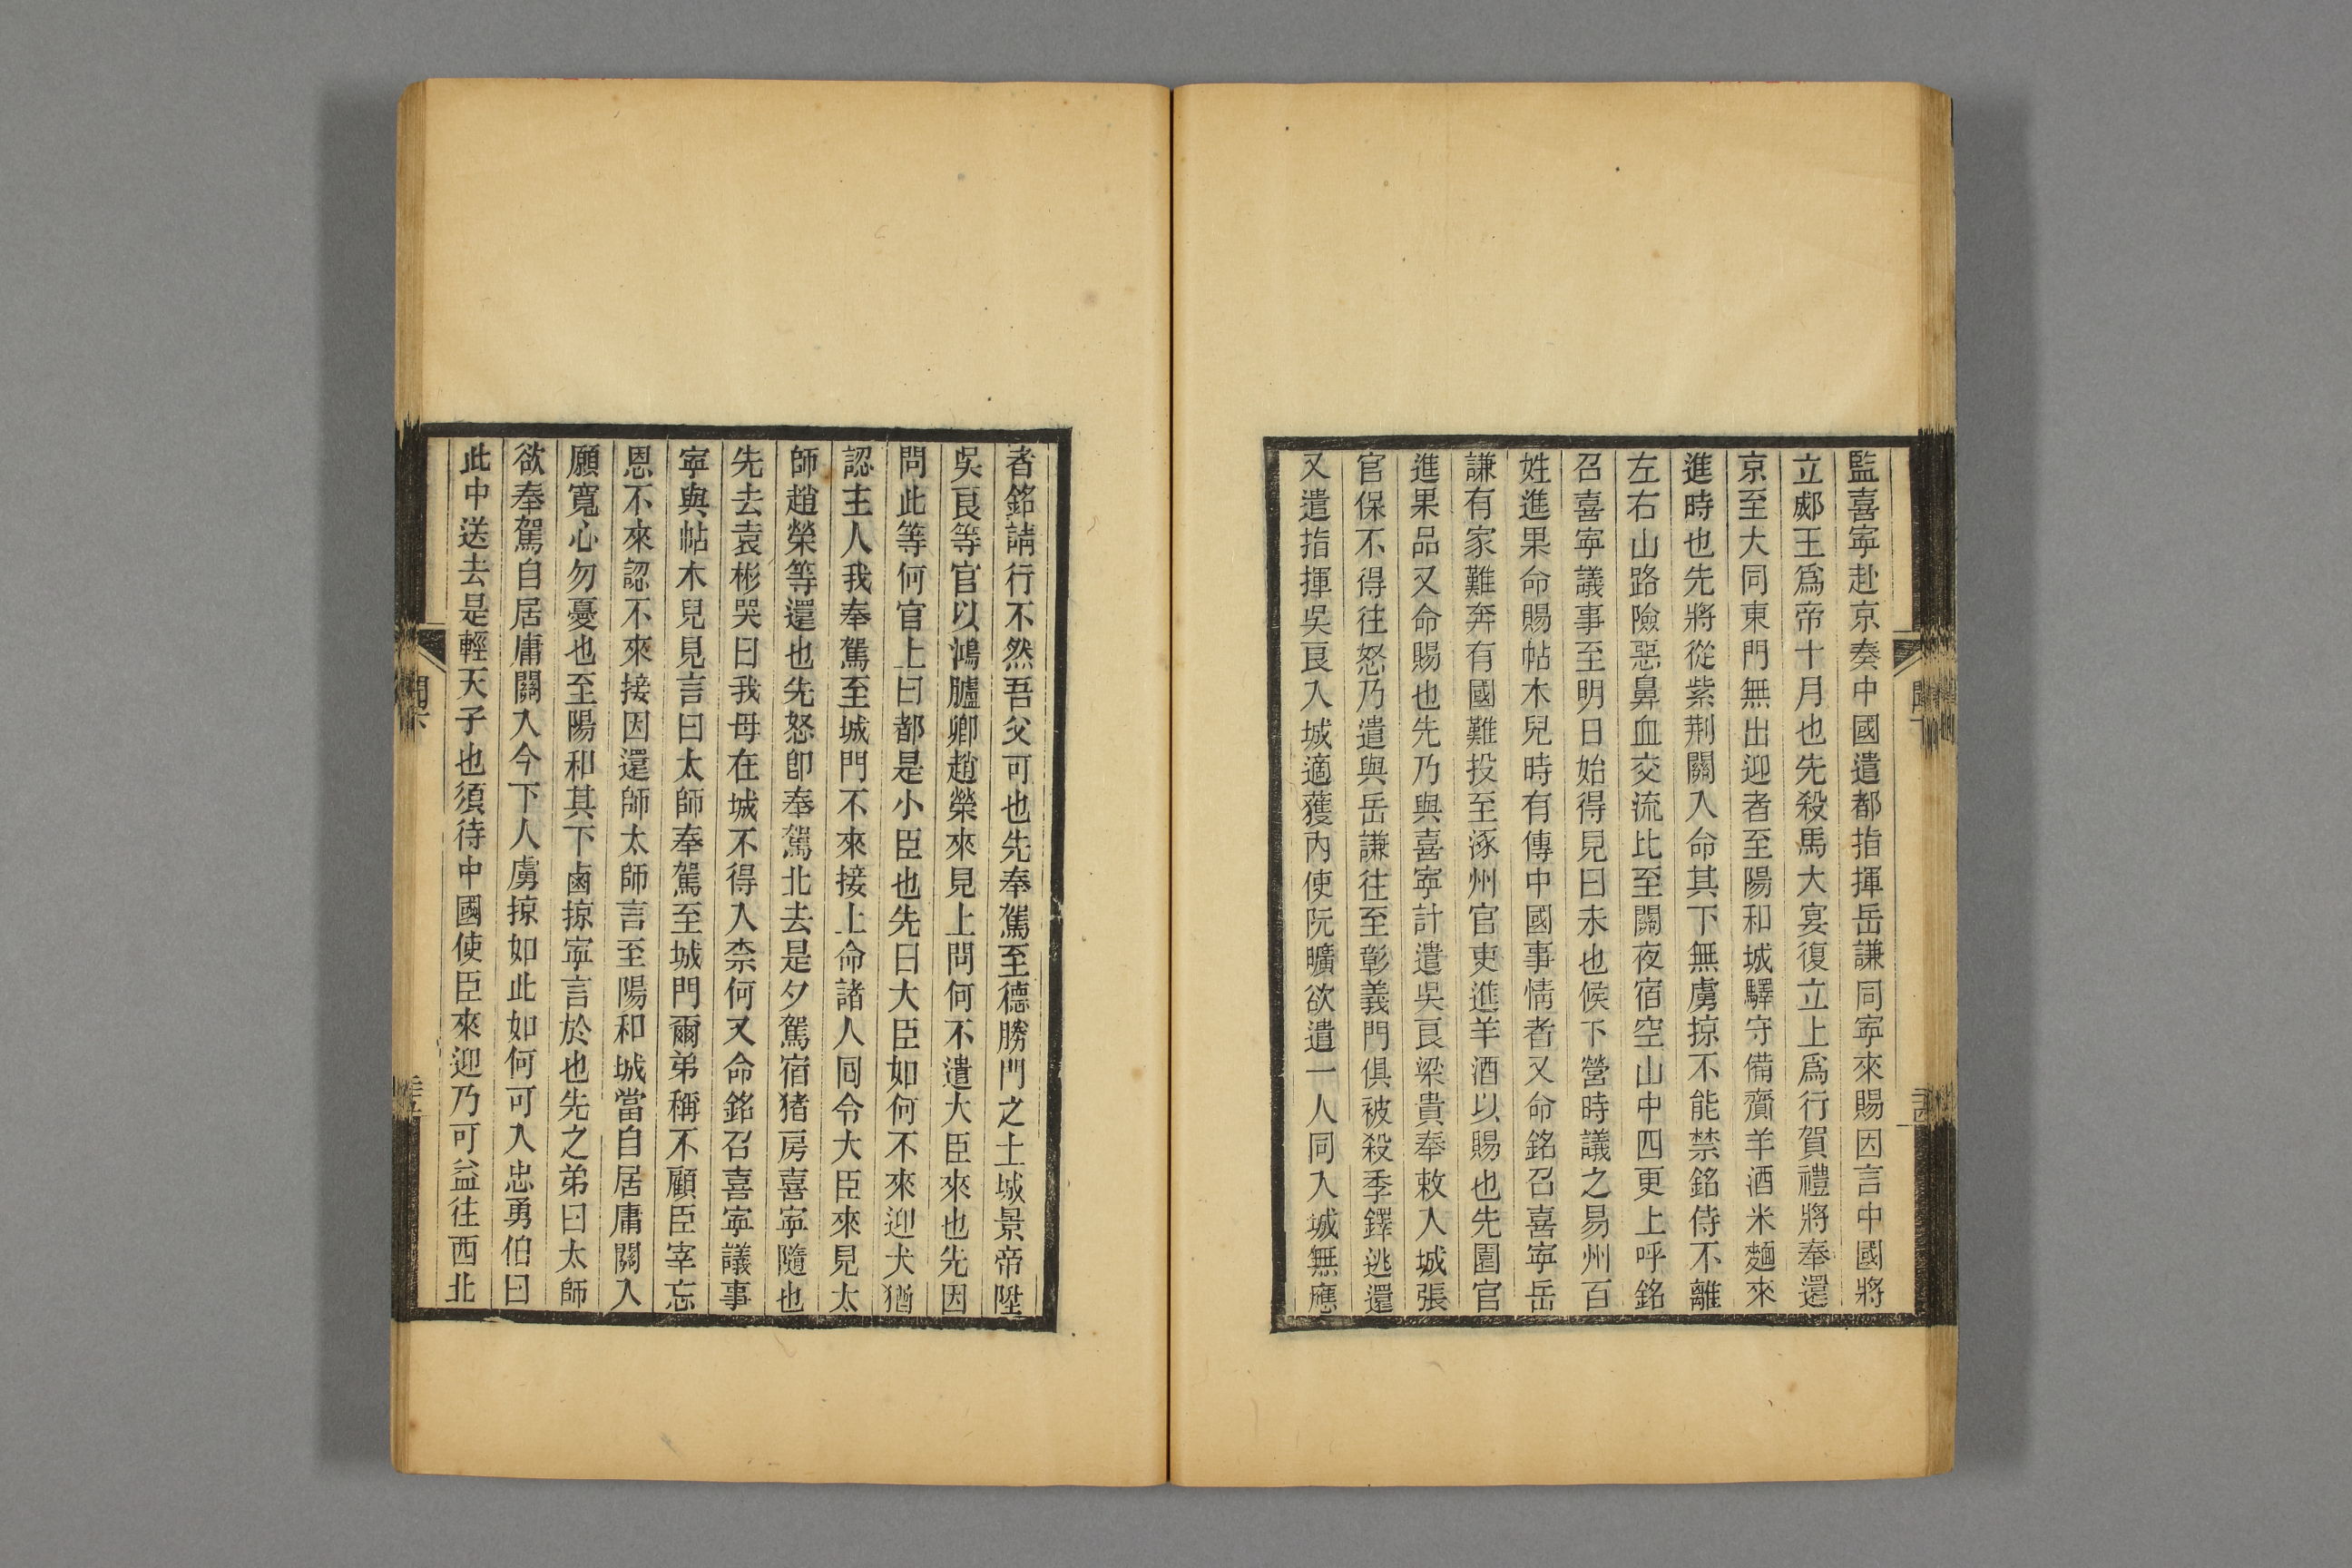 監喜寜赴京奏中國遣都指揮岳謙同寜來賜因言中國將
立郕王爲帝十月也先殺馬大宴復立上爲行賀禮將奉還
京至大同東門無出迎者至陽和城驛守備齎羊酒米麵來
進時也先將從紫荆關入命其下無虜掠不能禁銘侍不離
左右山路險惡鼻血交流比至關夜宿空山中四更上呼銘
召喜寜議事至明日始得見曰未也候下營時議之易州百
姓進果命賜帖木兒時有傳中國事情者又命銘召喜寜岳
謙有家難奔有國難投至涿州官吏進羊酒以賜也先圍官
進果品又命賜也先乃與喜寜計遣吳良梁貴奉敕入城張
官保不得往怒乃遣與岳謙往至彰義門俱被殺季鐸逃還
又遣指揮吳良入城適獲內使阮曠欲遣一人同入城無應
者銘請行不然吾父可也先奉駕至德勝門之土城景帝陞
吳良等官以鴻臚卿趙榮來見上問何不遣大臣來也先因
問此等何官上曰都是小臣也先曰大臣如何不來迎犬猶
認主人我奉駕至城門不來接上命諸人囘令大臣來見太
師趙榮等還也先怒卽奉駕北去是夕駕宿猪房喜寜隨也
先去袁彬哭曰我母在城不得入柰何又命銘召喜寜議事
寜與帖木兒見言曰太師奉駕至城門爾弟稱不顧臣宰忘
恩不來認不來接因還師太師言至陽和城當自居庸關入
願寬心勿憂也至陽和其下鹵掠寜言於也先之弟曰太師
欲奉駕自居庸關入今下人虜掠如此如何可入忠勇伯曰
此中送去是輕天子也須待中國使臣來迎乃可益往西北